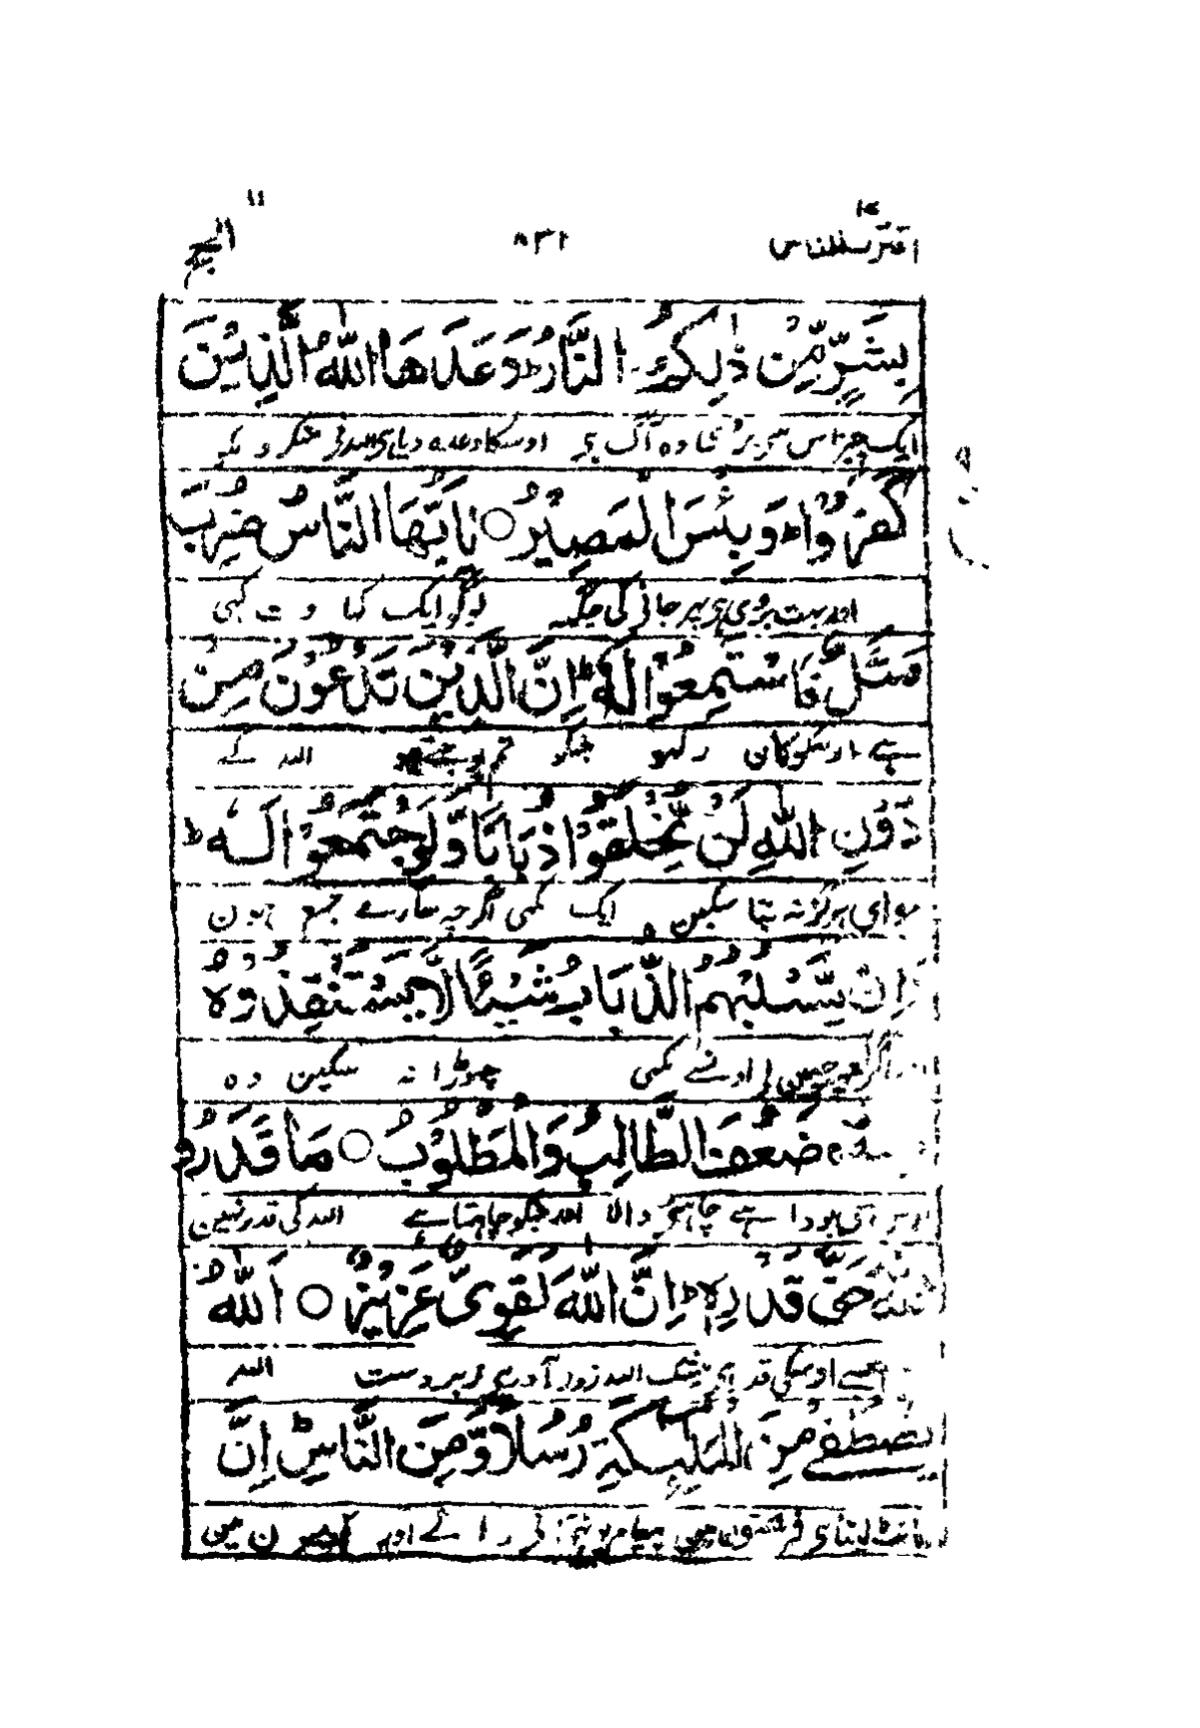 ١٧ ١١
اقترب للناس ٨٣٢ الحج
بِشَرٍّ مِّنْ ذٰلِكُمْ ؕ اَلنَّارُ ؕ وَعَدَهَا اللّٰهُ الَّذِيْنَ
ایک چیز اس سے بری وہ آگ ہی اوسکا وعدہ دیا ہی اللہ نے
كَفَرُوْا ؕ وَبِئْسَ الْمَصِيْرُ ○ يٰاَيُّهَا النَّاسُ ضُرِبَ
اور بہت بری ہی پہر جانے کی جگہہ لوگو ایک کہی
مَثَلٌ فَاسْتَمِعُوْا لَهٗ ؕ اِنَّ الَّذِيْنَ تَدْعُوْنَ مِنْ
ہے اوسکو کان رکہو جنکو تم پوجتے ہو اللہ کے
دُوْنِ اللّٰهِ لَنْ يَّخْلُقُوْا ذُبَابًا وَّلَوِ اجْتَمَعُوْا لَهٗ ؕ
سوای ہرگز نہ بنا سکین ایک مکہی اگرچہ سارے جمع ہون
وَاِنْ يَّسْلُبْهُمُ الذُّبَابُ شَيْئًا لَّا يَسْتَنْقِذُوْهُ
اگر چھین لے اونسے مکہی چوڑا نہ سکین وہ
مِنْهُ ؕ ضَعُفَ الطَّالِبُ وَالْمَطْلُوْبُ ○ مَا قَدَرُوا
بودا ہے چاہنے والا اور جنکو چاہتا ہے اللہ کی قدر نہین
اللّٰهَ حَقَّ قَدْرِهٖ ؕ اِنَّ اللّٰهَ لَقَوِيٌّ عَزِيْزٌ ○ اَللّٰهُ
جیسے اوسکی قدر ہی بیشک اللہ زور آور ہی زبردست اللہ
يَصْطَفِيْ مِنَ الْمَلٰٓئِكَةِ رُسُلًا وَّمِنَ النَّاسِ ؕ اِنَّ
چھانٹ لیتا ہی فرشتون مین پیغام پہنچانے والے اور مین